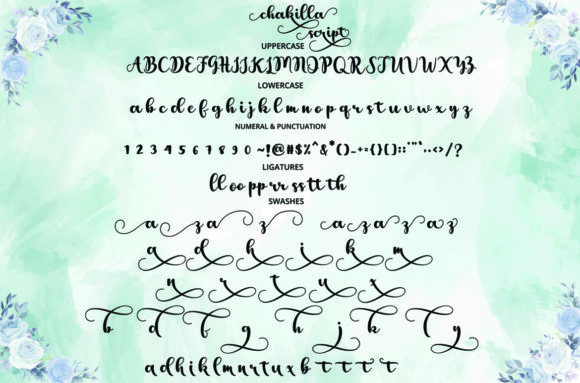 chakilla
script
UPPERCASE
ABCDEFGHIJKLMNOPQRSTUVWXYZ
LOWERCASE
a b c d e f g h i j k l m n o p q r s t u v w x y z
NUMERAL & PUNCTUATION
1 2 3 4 5 6 7 8 9 0 ~!@#$%^&*()_-+={}[]::'"“‘..<>/?
LIGATURES
ll oo pp rr ss tt th
SWASHES
a z a z a z a z a z
a d h i k m
n r t u x
b d f g h j k l y
a d h i k l m n r t u x b t t t t